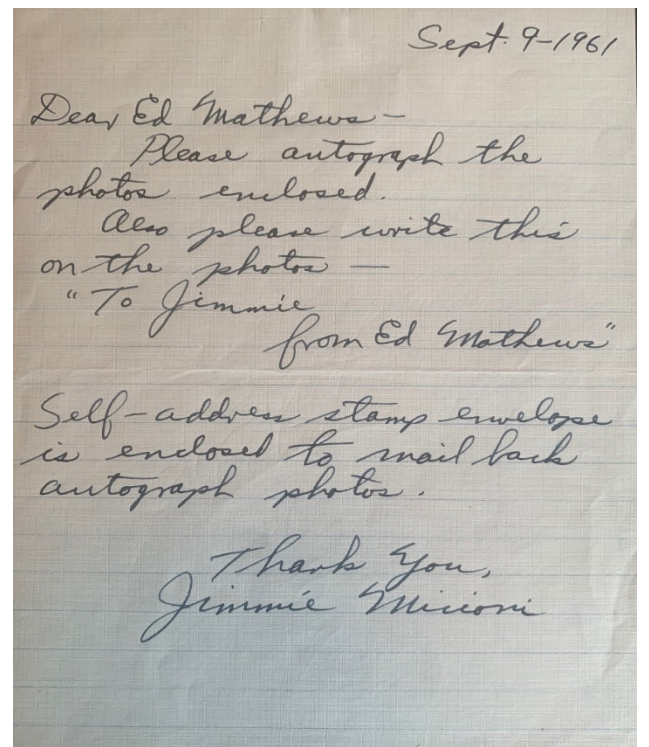 Sept. 9-1961
Dear Ed Mathews-
Please autograph the
photos enclosed.
Also please write this
on the photos —
"To Jimmie
from Ed Mathews"
Self-address stamp envelope
is enclosed to mail back
autograph photos.
Thank You,
Jimmie